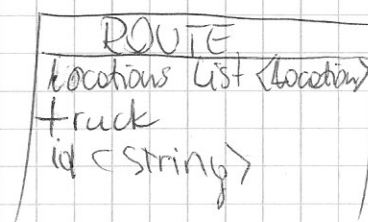 ROUTE
Locations List <Location>
truck
id <string>